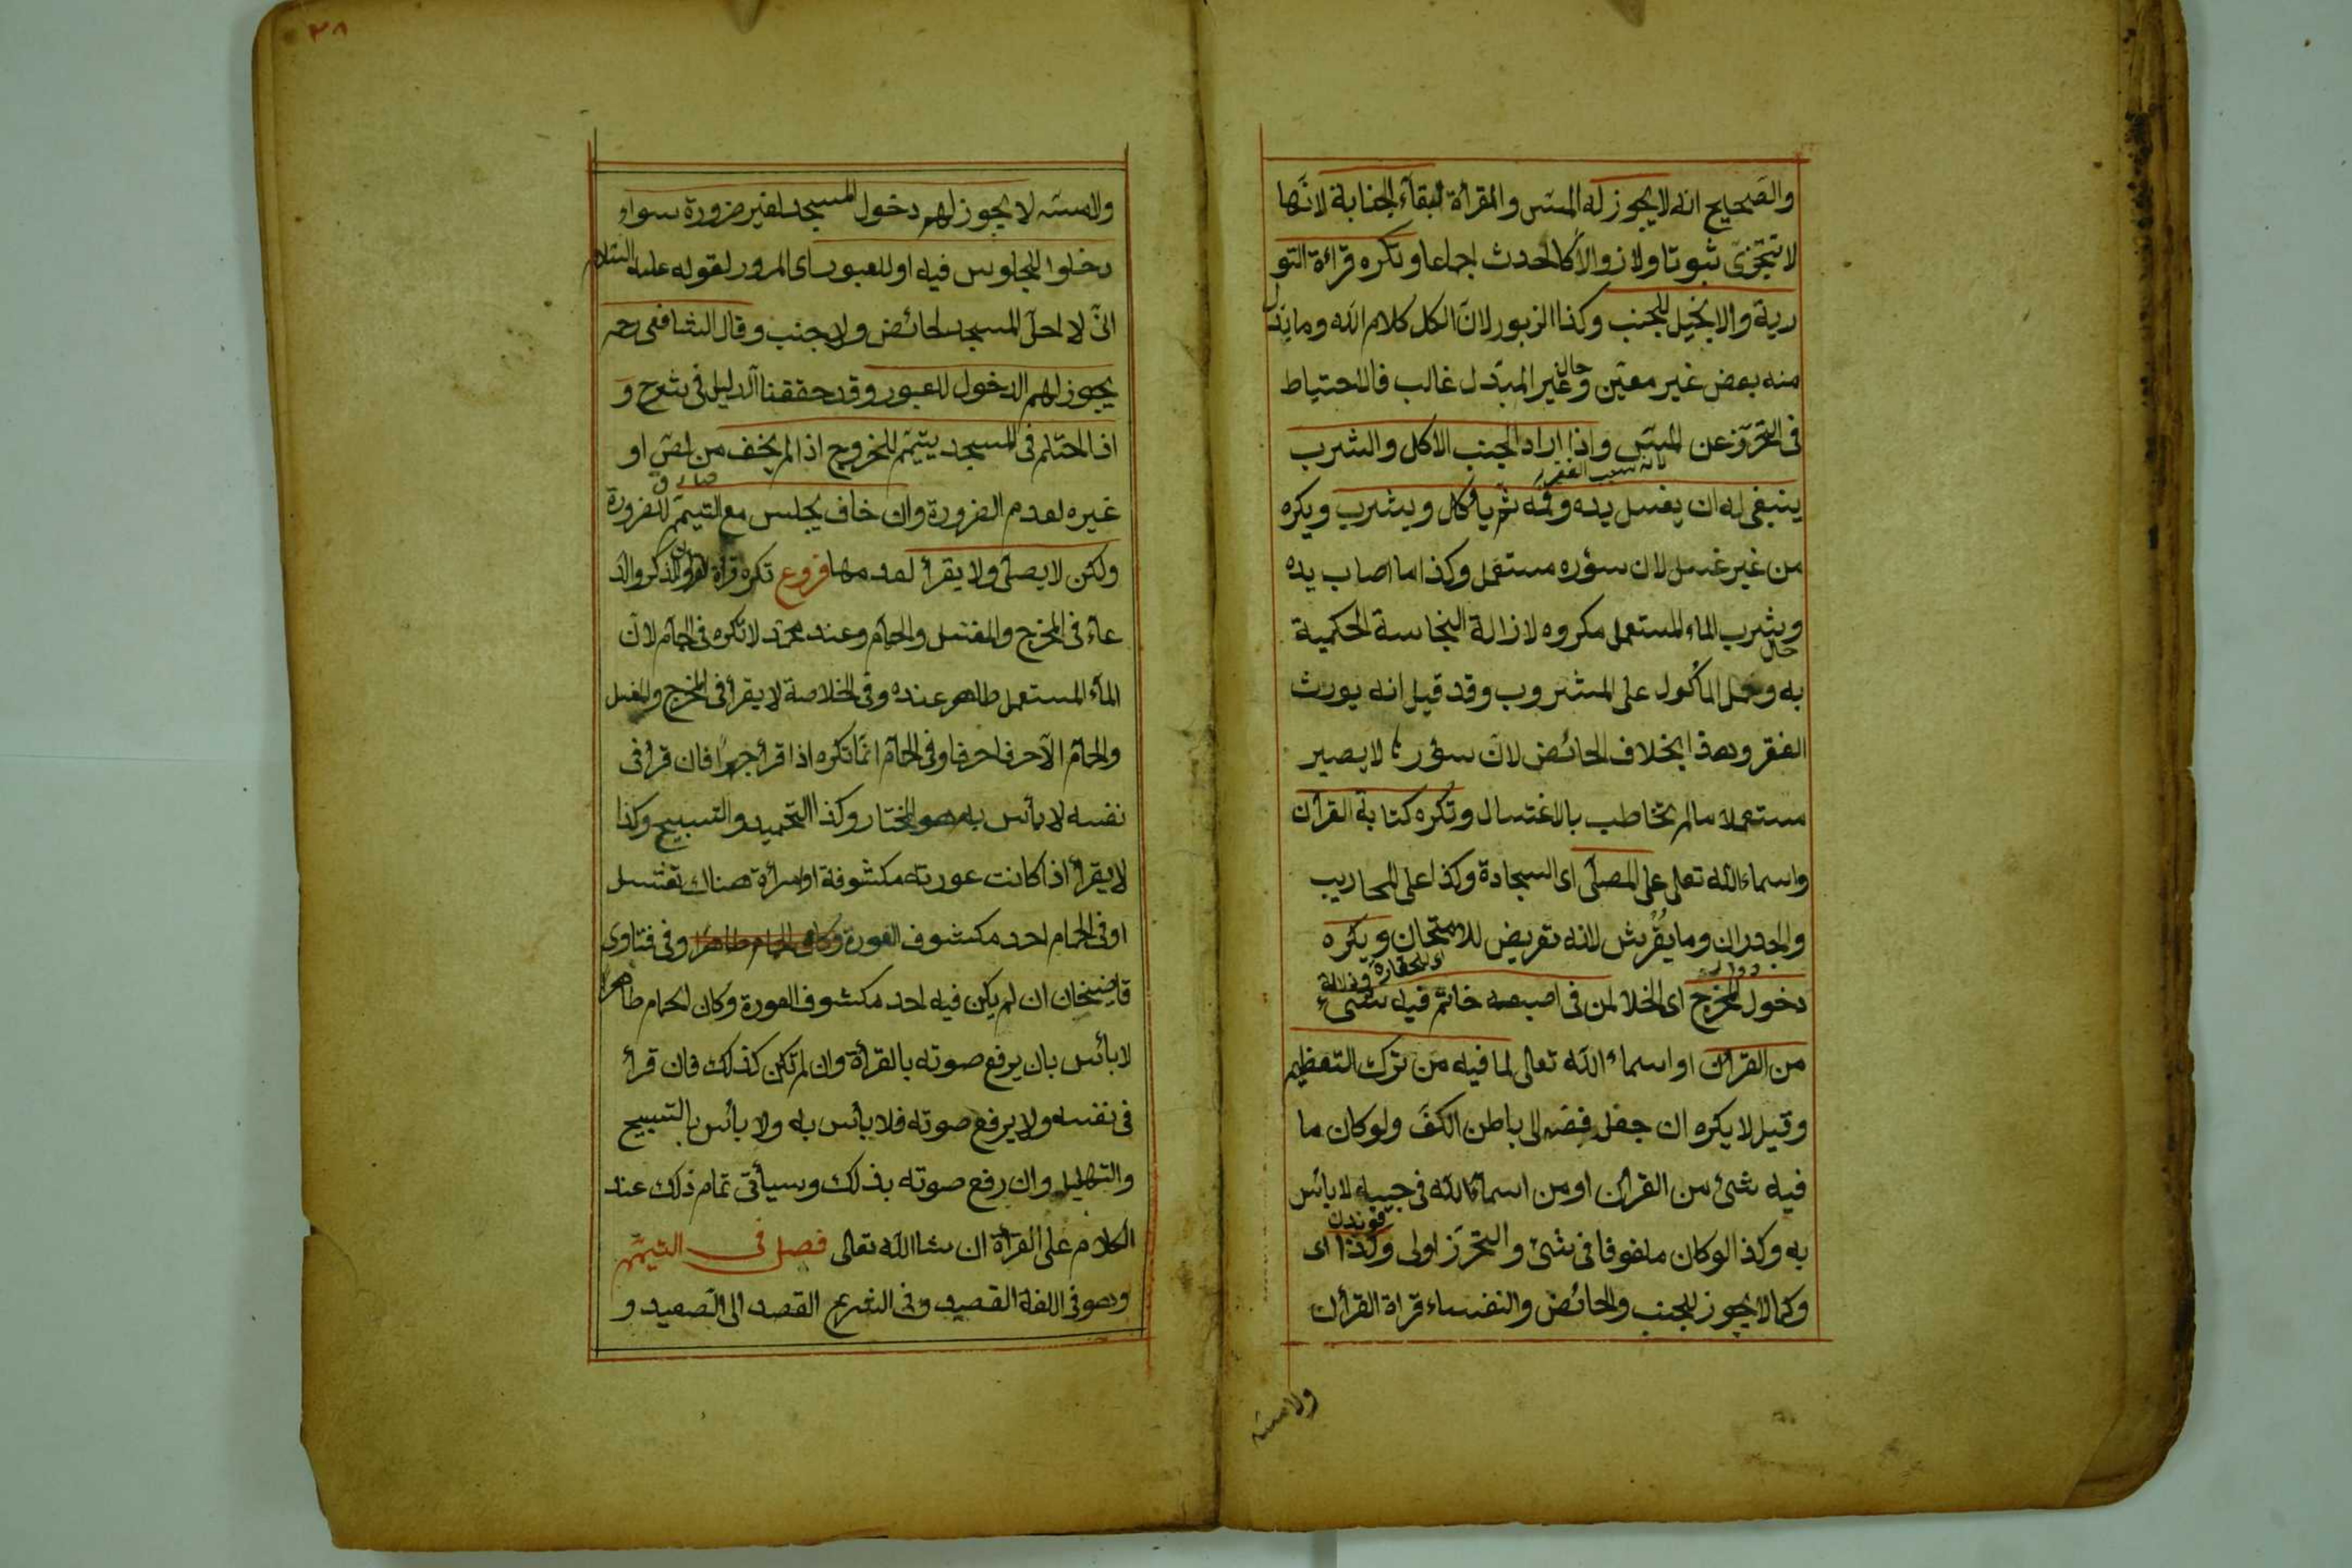 والصحيح انه لا يجوز له المس والقرأة لبقاء الجنابة لانها
لا تتجزى ثبوتا ولا زوالا كالحدث اجماعا وتكره قرائة التو
رية والانجيل للجنب وكذا الزبور لان الكل كلام الله وما بدل
منه بعض غير معين وغير المبدل غالب فالاحتياط
فى التحرز عن المس واذا اراد الجنب الاكل والشرب
لانه سبب الفقر
ينبغى له ان يغسل يده وفمه ثم ياكل ويشرب ويكره
من غير غسل لان سؤره مستعمل وكذا ما اصاب يده
وشرب الماء المستعمل مكروه لازالة النجاسة الحكمية
به وحمل المأكول على المشروب وقد قيل انه يورث
الفقر وهذا بخلاف الحائض لان سؤرها لا يصير
مستعملا ما لم تخاطب بالاغتسال وتكره كتابة القرأن
واسماء الله تعالى على المصلى اى السجادة وكذا على المحاريب
والجدران وما يفرش لانه تعريض للامتحان ويكره
دخول المخرج اى الخلا لمن فى اصبعه خاتم فيه شىء
من القرأن او اسماء الله تعالى لما فيه من ترك التعظيم
وقيل لا يكره ان جعل فصه الى باطن الكف ولو كان ما
فيه شئ من القرأن او من اسماء الله فى جيبه لا بائس
به وكذا لو كان ملفوفا فى شئ والتحرز اولى وكذا اى
وكما لا يجوز للجنب والحائض والنفساء قراة القرأن
ولا مسه
٣٨
ولا مسه لا يجوز لهم دخول المسجد لغير ضرورة سواء
دخلوا للجلوس فيه او للعبور اى المرور لقوله عليه السلام
انى لا احل المسجد لحائض ولا جنب وقال الشافعى رحه
يجوز لهم الدخول للعبور وقد حققنا الدليل فى شرح و
اذا احتلم فى المسجد يتيمم للخروج اذا لم يخف من لص او
غيره لعدم الضرورة وان خاف يجلس مع التيمم للضرورة
ولكن لا يصلى ولا يقرأ لعدمها فروع تكره قرأة القرأن والذكر والد
عاء فى المخرج والمغتسل والحمام وعند محمد لا تكره فى الحمام لان
الماء المستعمل طاهر عنده وفى الخلاصة لا يقرأ فى المخرج والمغسل
والحمام الا حرفا حرفا وفى الحمام انما تكره اذا قرأ جهرا فان قرأ فى
نفسه لا بأس به هو المختار وكذا التحميد والتسبيح وكذا
لا يقرأ اذا كانت عورته مكشوفة او امرأة هناك تغتسل
او فى الحمام احد مكشوف العورة وكان الحمام طاهرا وفى فتاوى
قاضيخان ان لم يكن فيه احد مكشوف العورة وكان الحمام طاهرا
لا بأس بان يرفع صوته بالقرأة وان لم تكن كذلك فان قرأ
فى نفسه ولا يرفع صوته فلا بأس به ولا بأس بالتسبيح
والتهليل وان رفع صوته بذلك وسيأتى تمام ذلك عند
الكلام على القرأة ان شا الله تعالى فصل فى التيمم
وهو فى اللغة القصد وفى الشرع القصد الى الصعيد و